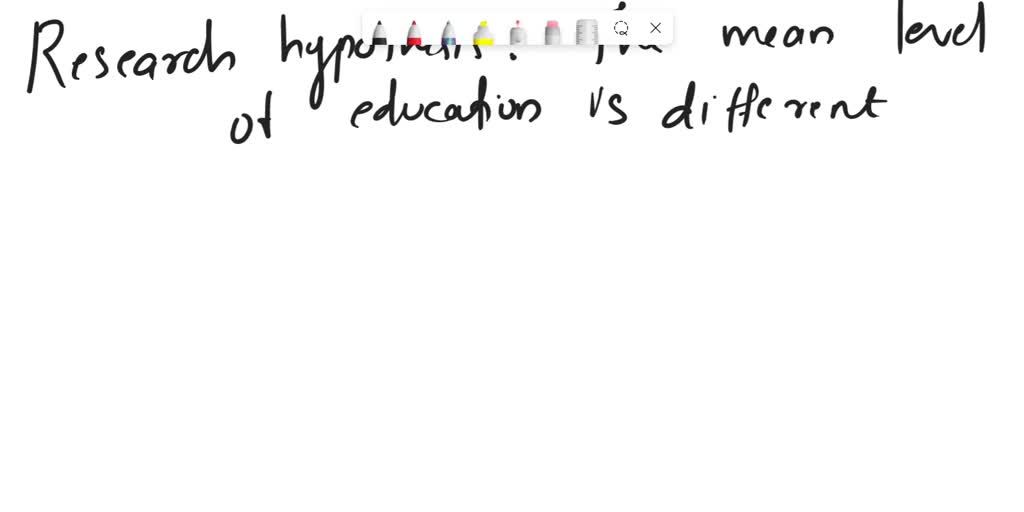 Research hypothesis: The mean level
of education is different